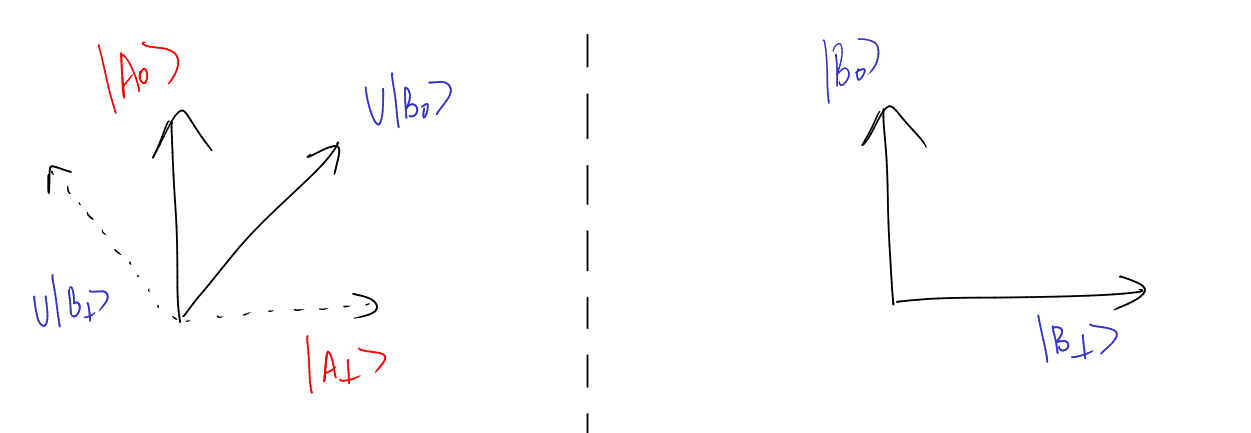 |A₀⟩
U|B₀⟩
U|B⊥⟩
|A⊥⟩
|B₀⟩
|B⊥⟩